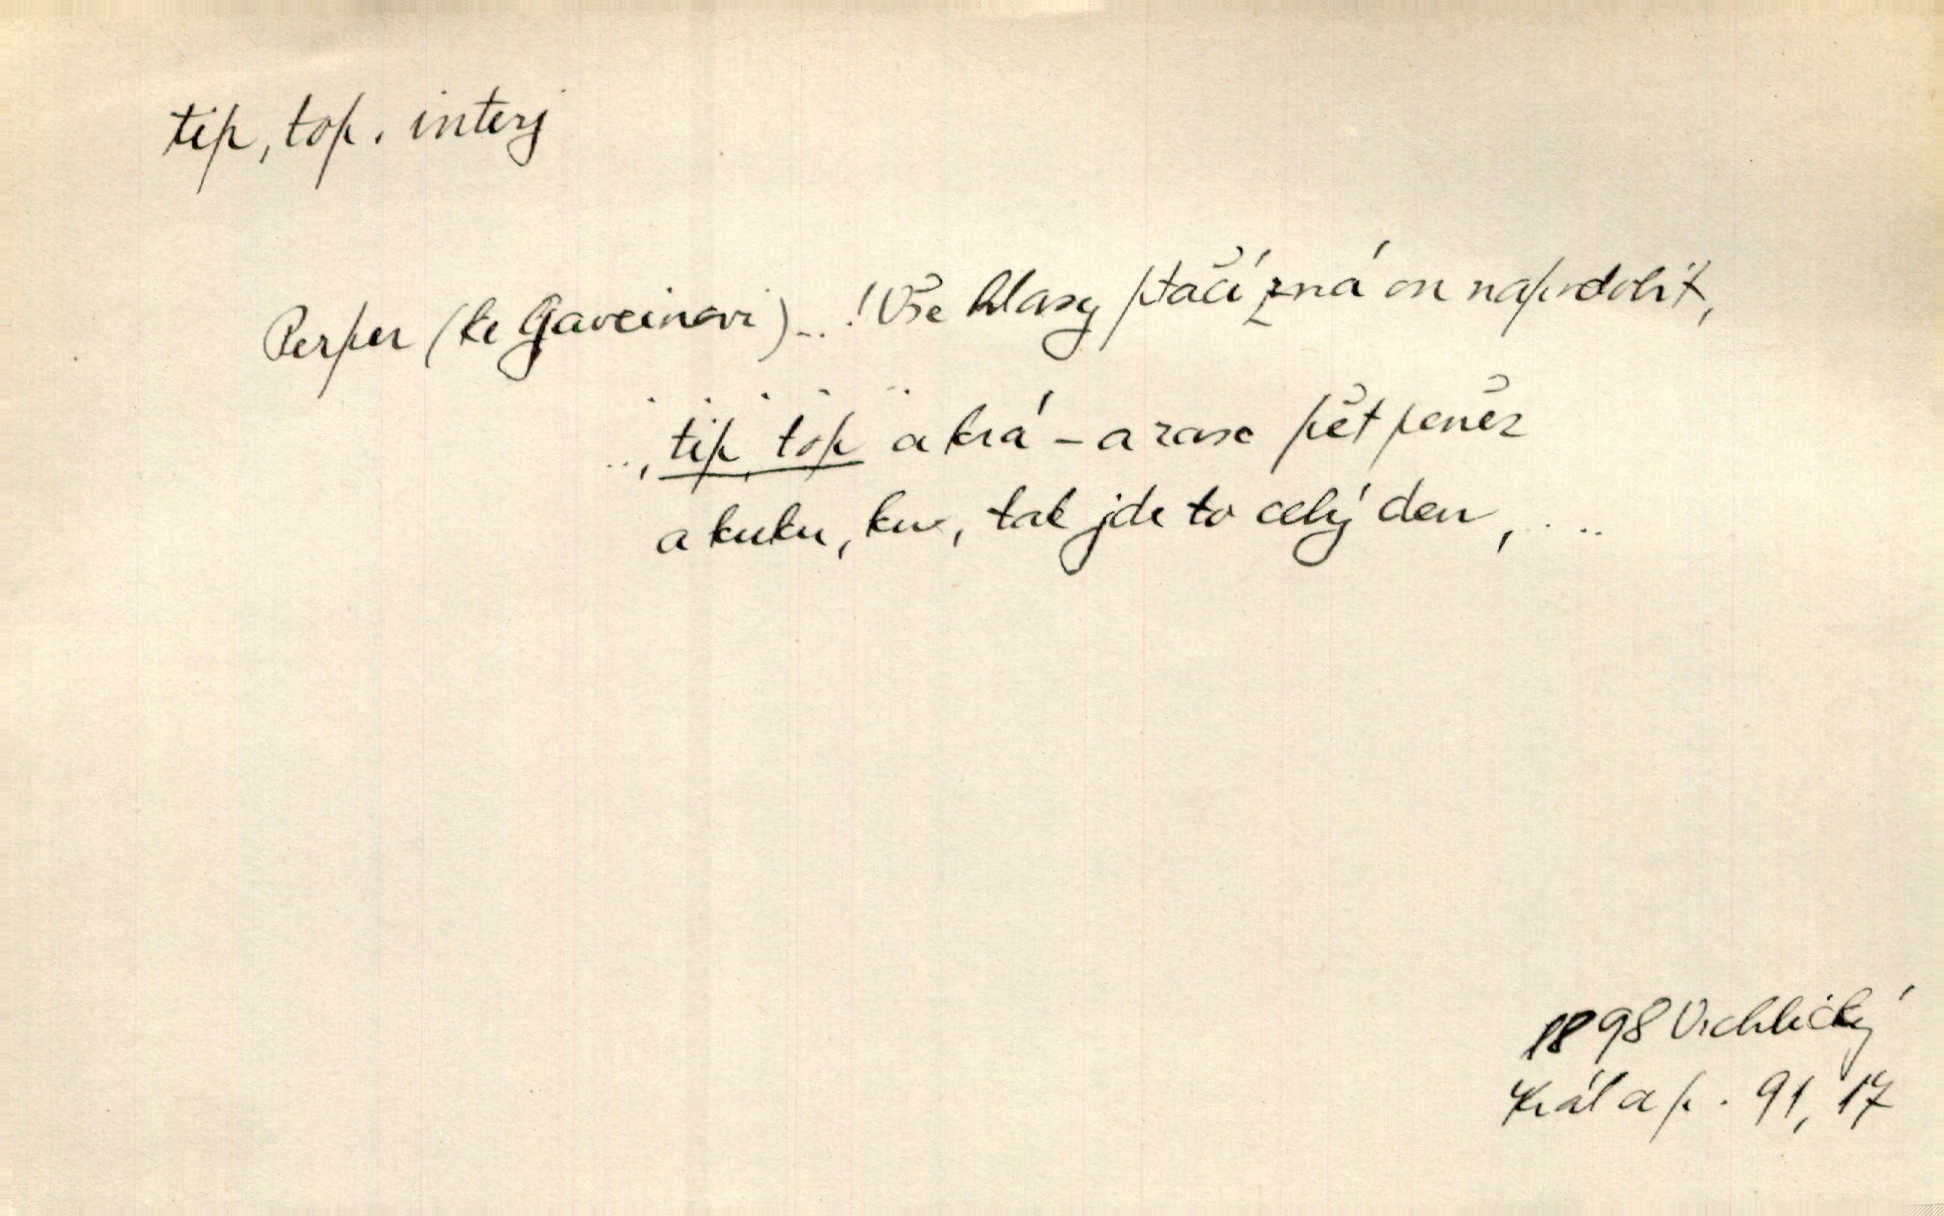 tip, top. interj
Perper (ke Gaveinovi)...! Vše hlasy ptačí zná on napodobit,
. . . . . .
.., tip, top a krá – a zase pět peněz
a kuku, ku, tak jde to celý den, ...
1898 Vrchlický
Král a p. 91, 17